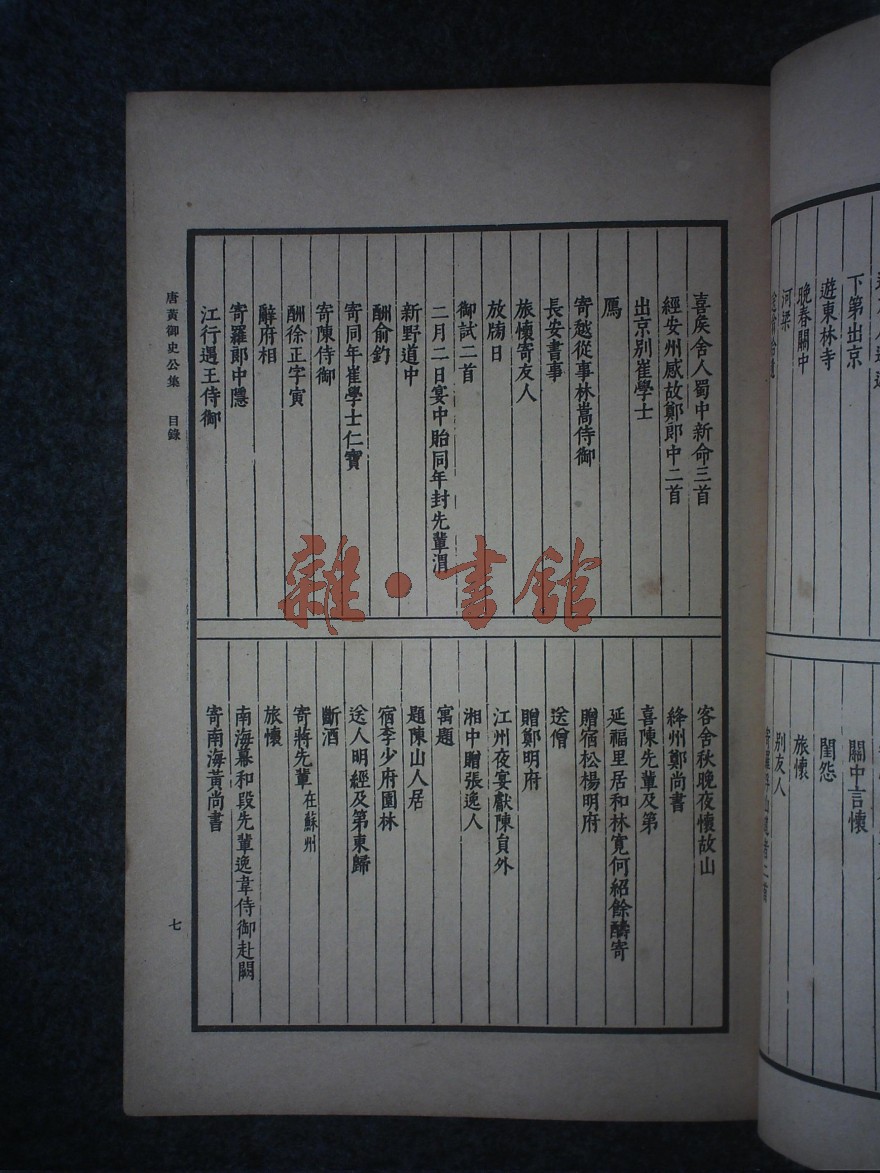 下第出京
遊東林寺
晚春關中
河梁
關中言懷
閨怨
旅懷
別友人
喜矦舍人蜀中新命三首
經安州感故鄭郎中二首
出京別崔學士
鴈
寄越從事林嵩侍御
長安書事
旅懷寄友人
放牓日
御試二首
二月二日宴中貽同年封先輩渭
新野道中
酬俞鈞
寄同年崔學士仁寶
寄陳侍御
酬徐正字寅
辭府相
寄羅郎中隱
江行遇王侍御
客舍秋晚夜懷故山
絳州鄭尚書
喜陳先輩及第
延福里居和林寬何紹餘酬寄
贈宿松楊明府
送僧
贈鄭明府
江州夜宴獻陳貟外
湘中贈張逸人
寓題
題陳山人居
宿李少府園林
送人明經及第東歸
斷酒
寄蔣先輩 在蘇州
旅懷
南海幕和段先輩送韋侍御赴闕
寄南海黃尚書
唐黃御史公集 目錄
七
雜·書館